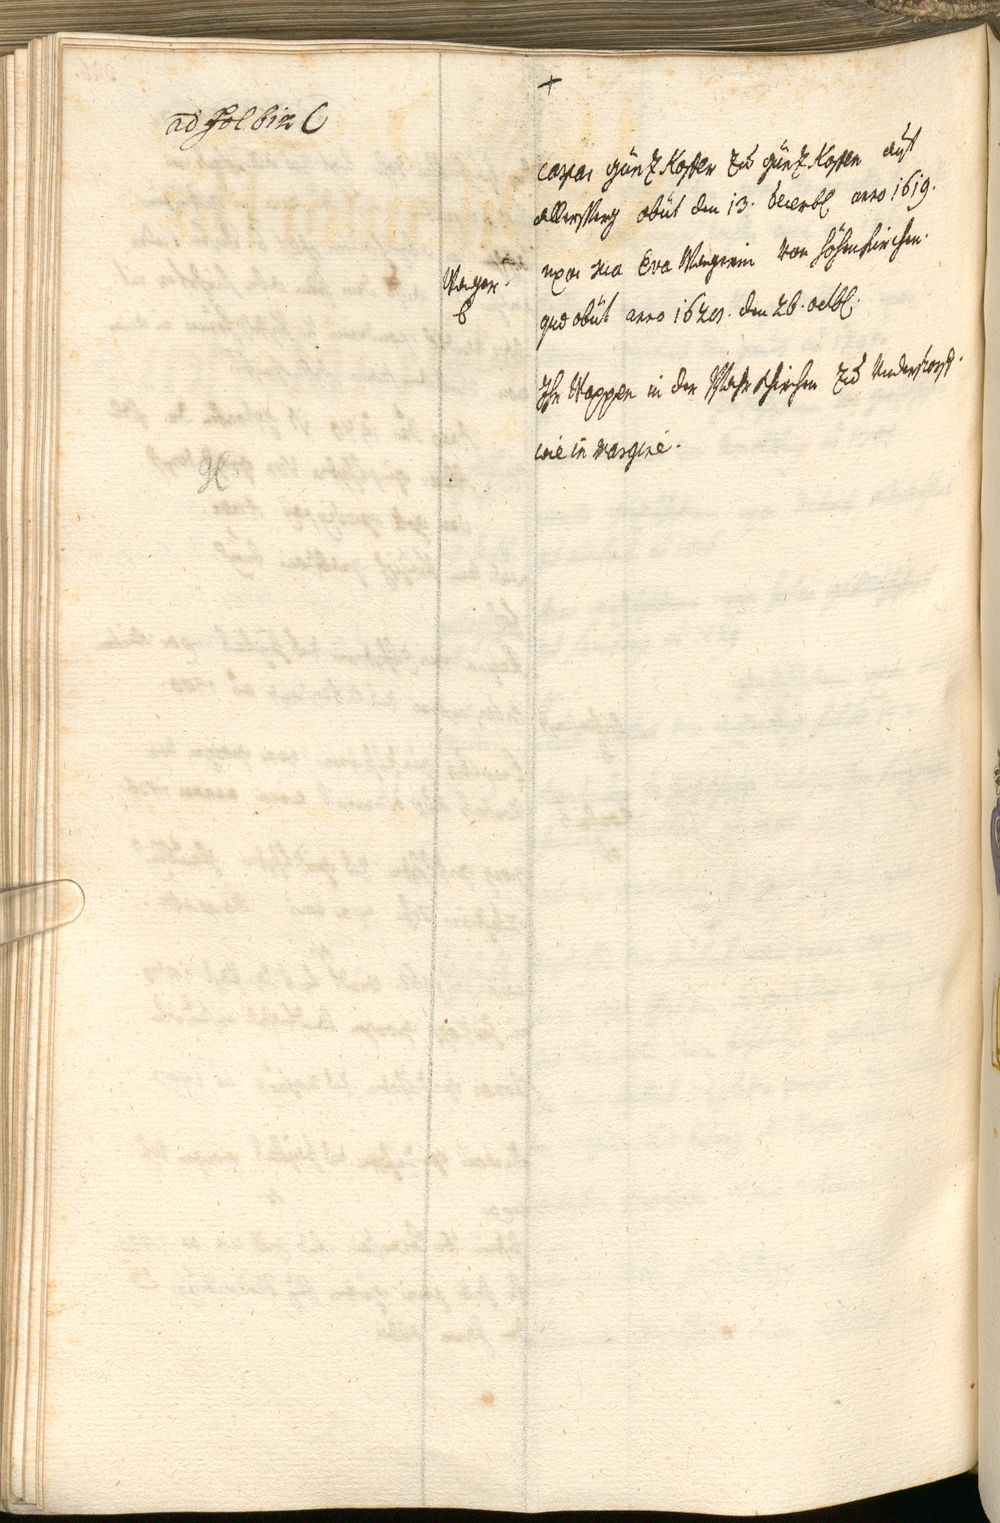 ad fol bin C
+
Caspar Günzkofer zu Günzkofen auf
Allersperg obiit den 13. Decembr anno 1619.
Wager
uxor sua Eva Wagerin von Höhenkirchen.
C
quae obiit anno 1620. den 26. octbr.
Ihr Wappen in der Pfarrkirchen zu
wie in margine.